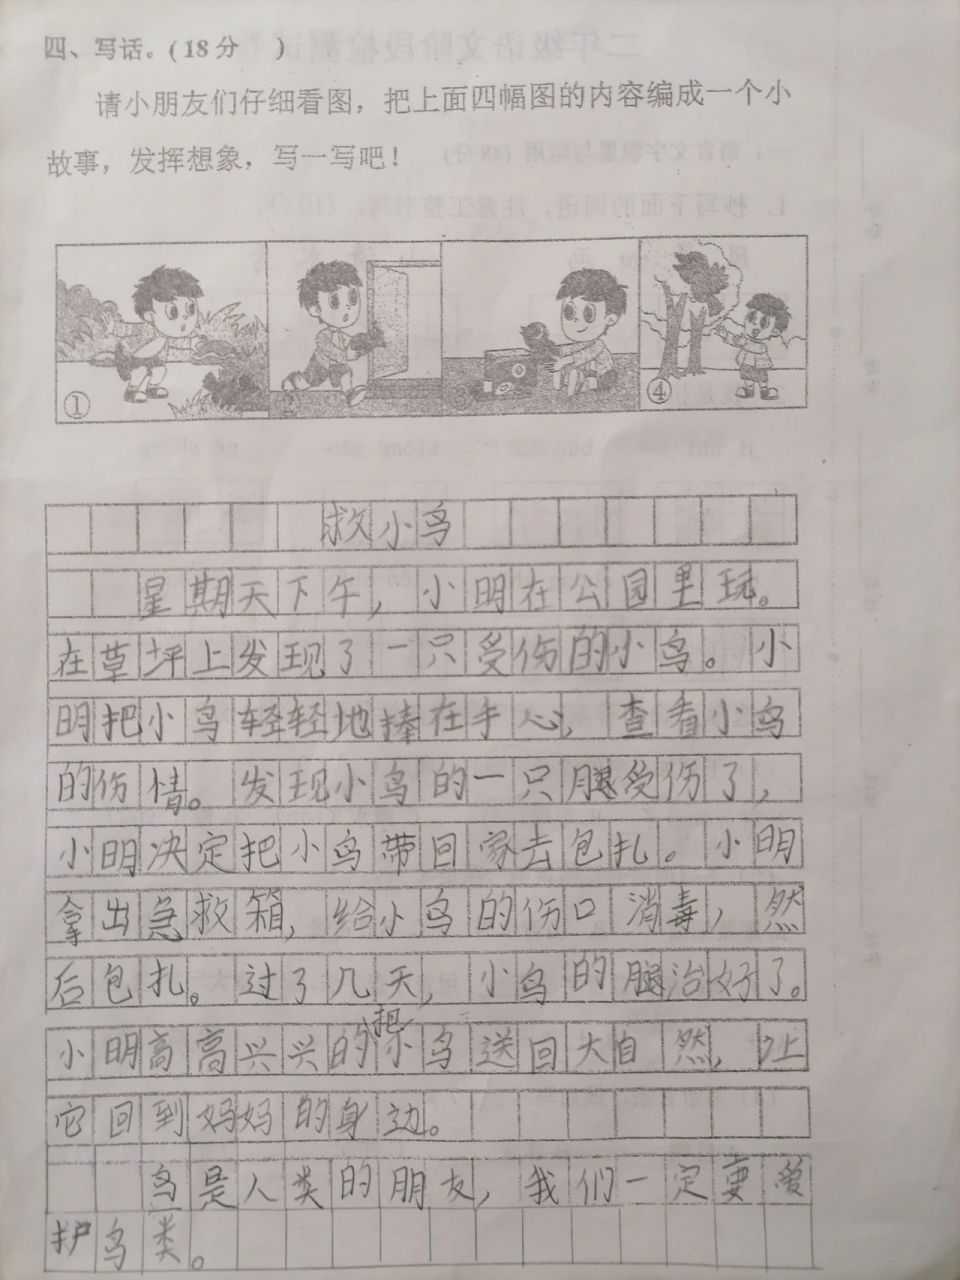 四、写话。(18分　　)
请小朋友们仔细看图，把上面四幅图的内容编成一个小
故事，发挥想象，写一写吧！
① ② ③ ④
救小鸟
星期天下午，小明在公园里玩。
在草坪上发现了一只受伤的小鸟。小
明把小鸟轻轻地捧在手心，查看小鸟
的伤情。发现小鸟的一只腿受伤了，
小明决定把小鸟带回家去包扎。小明
拿出急救箱，给小鸟的伤口消毒，然
后包扎。过了几天，小鸟的腿治好了。
小明高高兴兴的把小鸟送回大自然，让
它回到妈妈的身边。
鸟是人类的朋友，我们一定要爱
护鸟类。